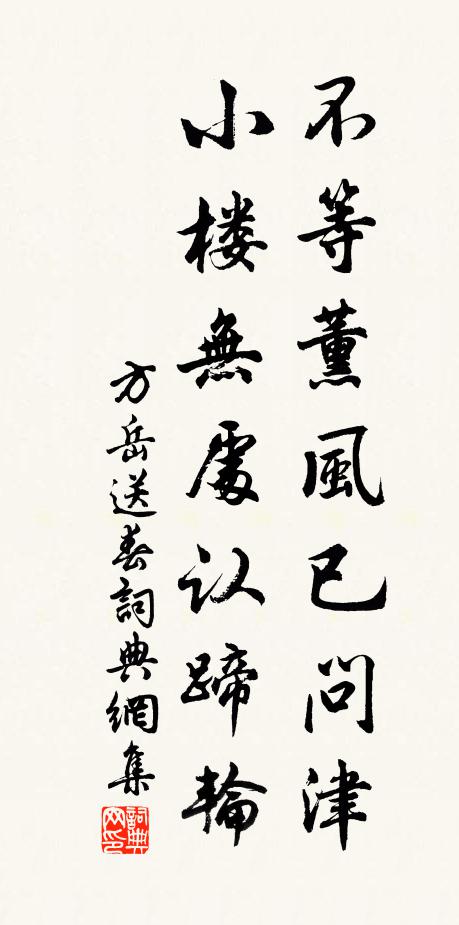 不等薰風已問津
小楼無處认蹄輪
方岳送春詞典網集
詞典网印